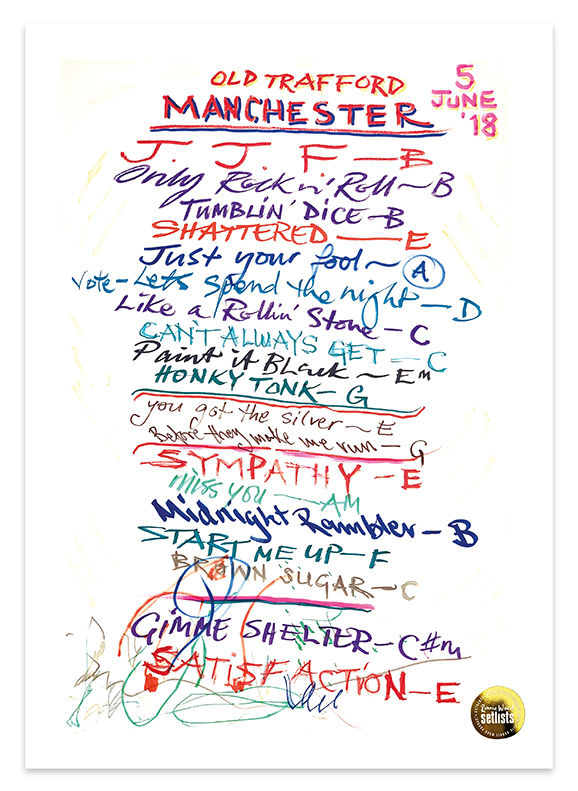 OLD TRAFFORD
MANCHESTER
5
JUNE
'18
J. J. F — B
Only Rock n' Roll ~ B
TUMBLIN' DICE – B
SHATTERED — E
Just your fool ~ A
Vote – Lets spend the night – D
Like a Rollin' Stone – C
CAN'T ALWAYS GET — C
Paint it Black ~ Em
HONKY TONK – G
you got the silver – E
Before they make me run – G
SYMPATHY – E
miss you — AM
Midnight Rambler – B
START ME UP – F
BROWN SUGAR – C
GIMME SHELTER – C#m
SATISFACTION – E
Ronnie Wood
setlists